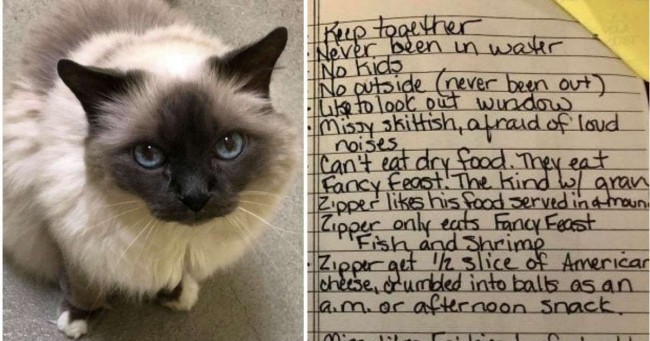 Keep together
Never been in water
No Kids
No outside (never been out)
Like to look out window
Missy skittish, afraid of loud
noises
Can't eat dry food. They eat
Fancy Feast! The kind w/ grav
Zipper likes his food served in a moun
Zipper only eats Fancy Feast
Fish and Shrimp
Zipper get 1/2 slice of American
cheese, crumbled into balls as an
a.m. or afternoon snack.